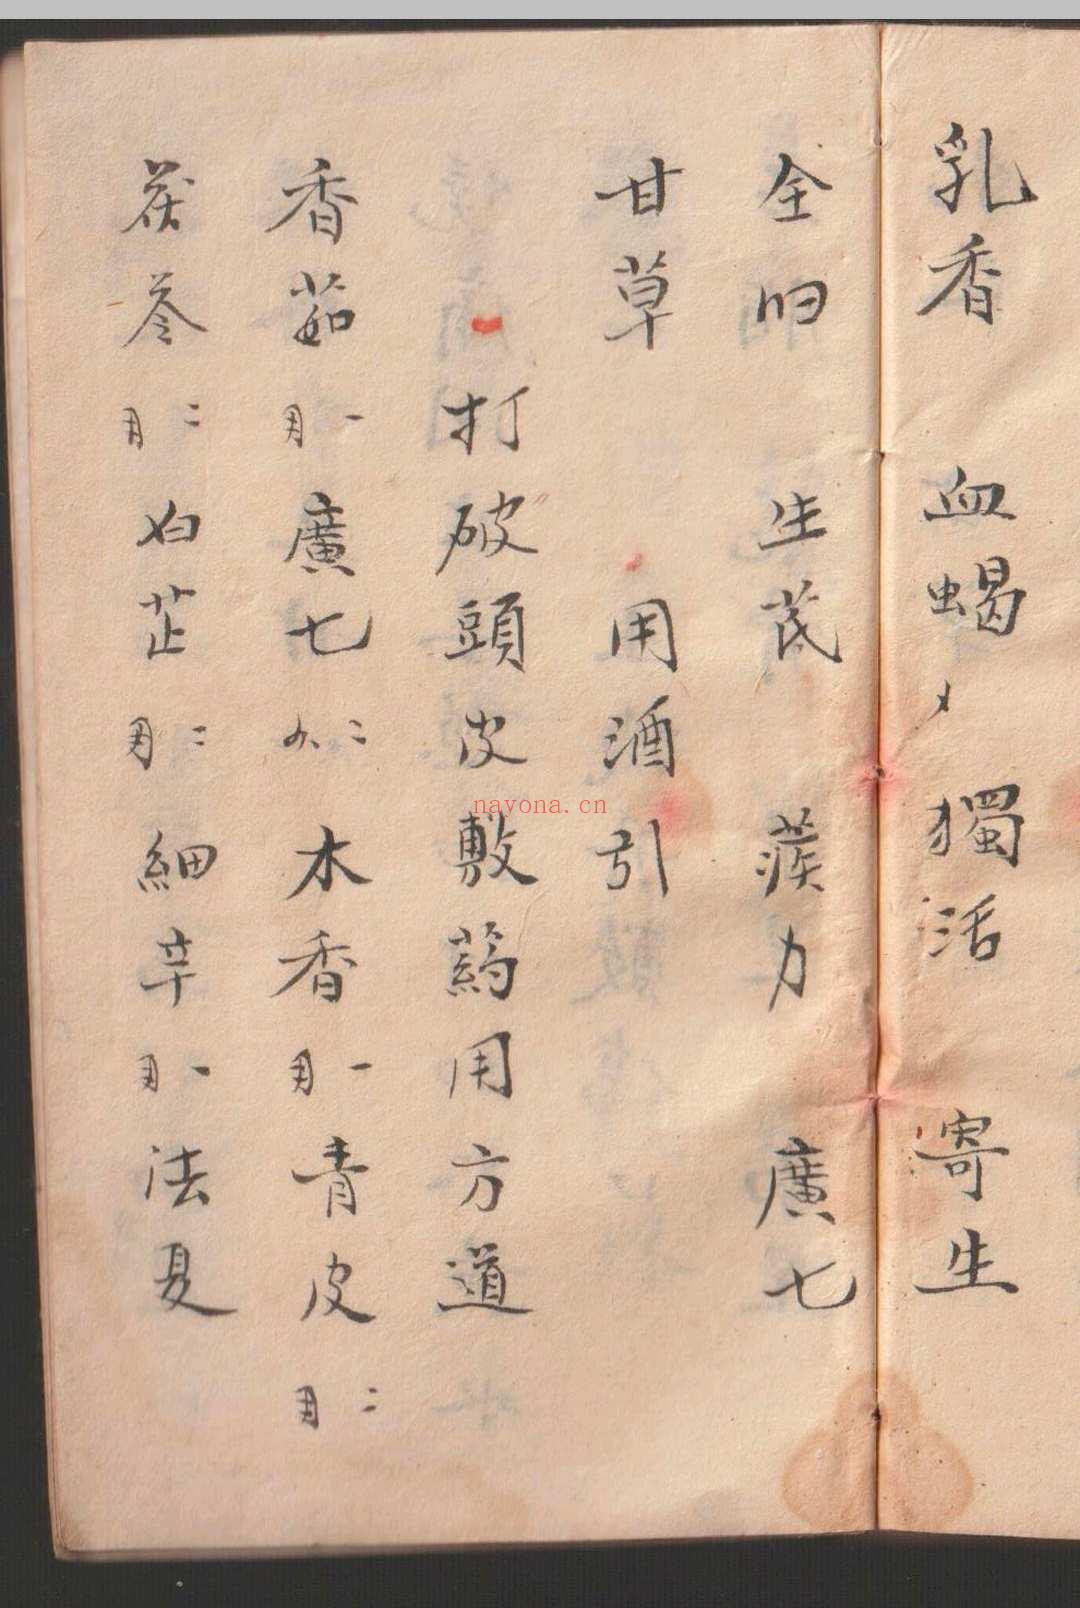 乳香 血蝎 獨活 寄生
全归 生芪 蒺力 廣七
甘草 用酒引
打破頭皮敷葯用方道
香茹 一 廣七 二 木香 一 青皮 二
茯苓 二 白芷 二 細辛 一 法夏
nayona.cn